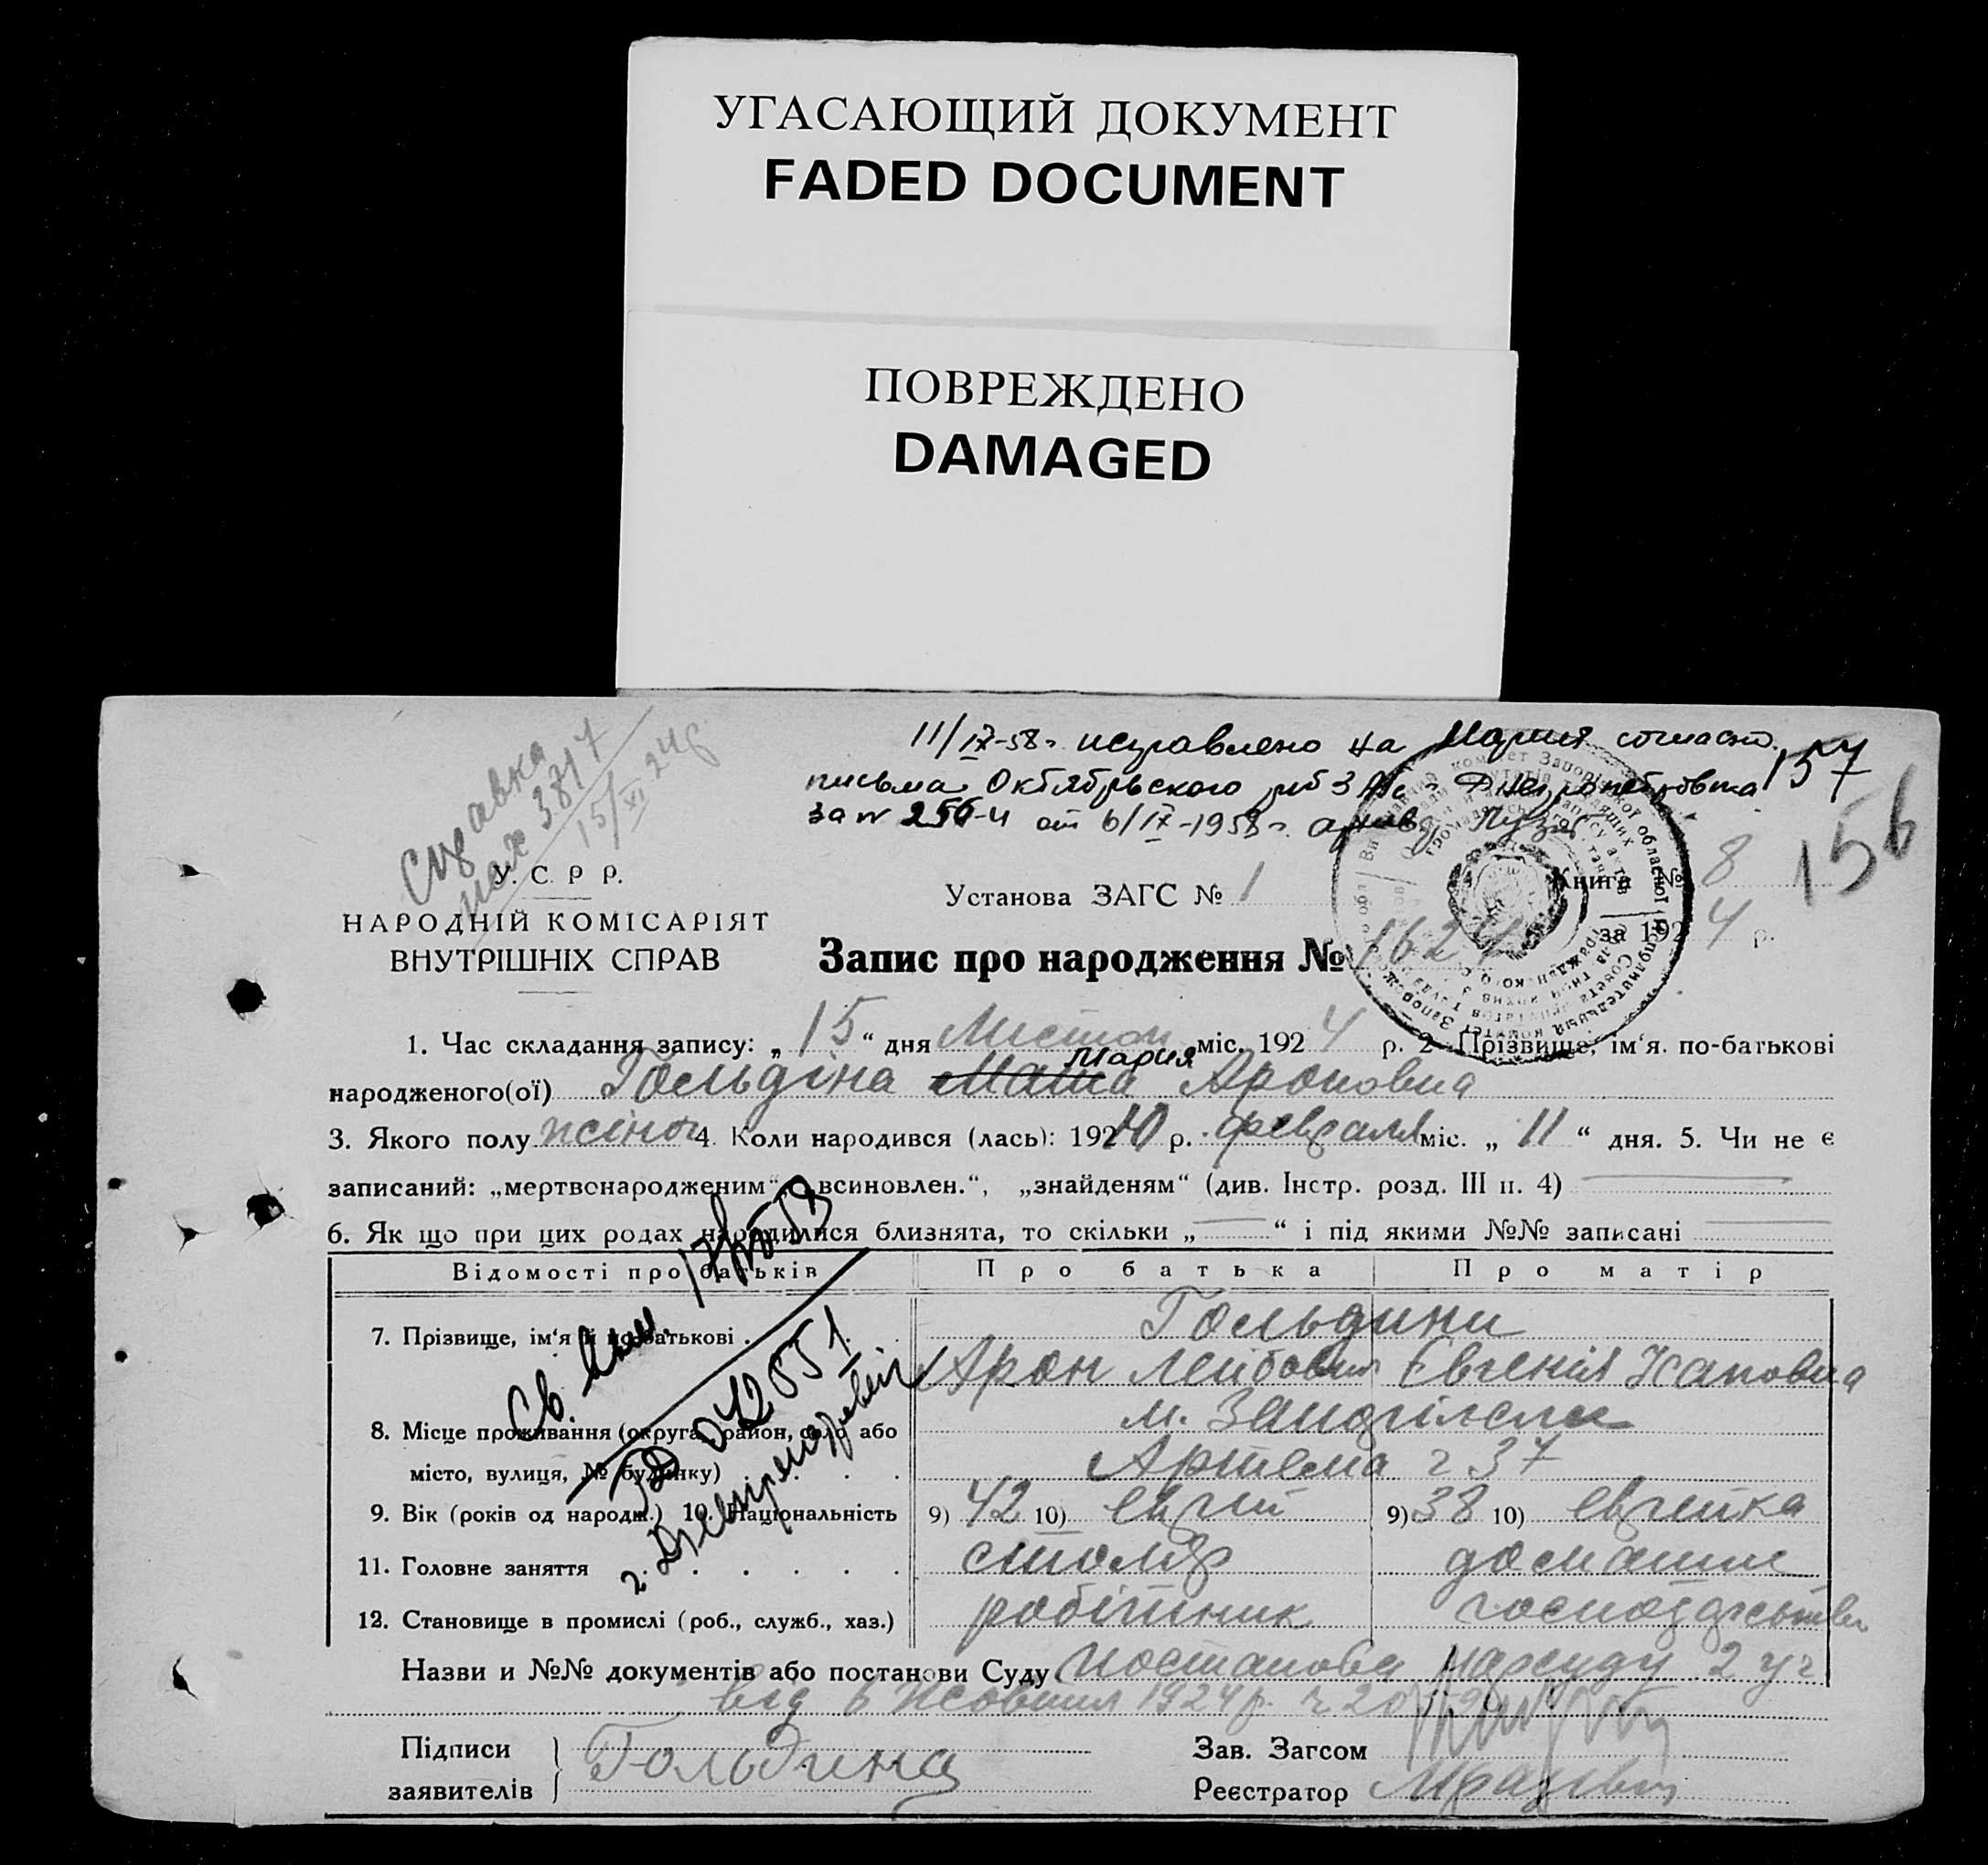 УГАСАЮЩИЙ ДОКУМЕНТ
FADED DOCUMENT
ПОВРЕЖДЕНО
DAMAGED
Справка
3817
15/XI 24
11/IX-58г. исправлено на Мария согласно
письма Октябрьского г. Днепропетровска
за № 256-и от 6/IX-1958г.
157
156
У. С. Р. Р.
НАРОДНІЙ КОМІСАРІЯТ
ВНУТРІШНІХ СПРАВ
Установа ЗАГС № 1
Книга № 8
за 1924 р.
Запис про народження № 1624
1. Час складання запису: „15“ дня Листоп міс. 1924 р. 2. Прізвище, ім‘я. по-батькові
Мария
народженого(ої) Гольдіна Маша Ароновна
3. Якого полу жіноч 4. Коли народився (лась): 1910 р. февраля міс. „11“ дня. 5. Чи не є
записаний: „мертвонародженим“, „всиновлен.“, „знайденям“ (див. Інстр. розд. III п. 4)
6. Як що при цих родах народилися близнята, то скільки „ “ і під якими №№ записані
Відомості про батьків
Про батька
Про матір
7. Прізвище, ім‘я й по-батькові
Гольдини
Арон Лейбович
Євгенія
8. Місце проживання (округа, район, село або
місто, вулиця, № будинку)
м. Запоріжжя
Артема 37
9. Вік (років од народж.) 10. Національність
9) 42 10) еврей
9) 38 10) еврейка
11. Головне заняття
столяр
домашнє
12. Становище в промислі (роб., служб., хаз.)
робітник
господарство
Св.
042551
г. Днепропетровск
Назви и №№ документів або постанови Суду Постанова Нарсуду 2 уч
від 6 Жовтня 1924 р.
Підписи
заявителів
Гольдина
Зав. Загсом
Реєстратор